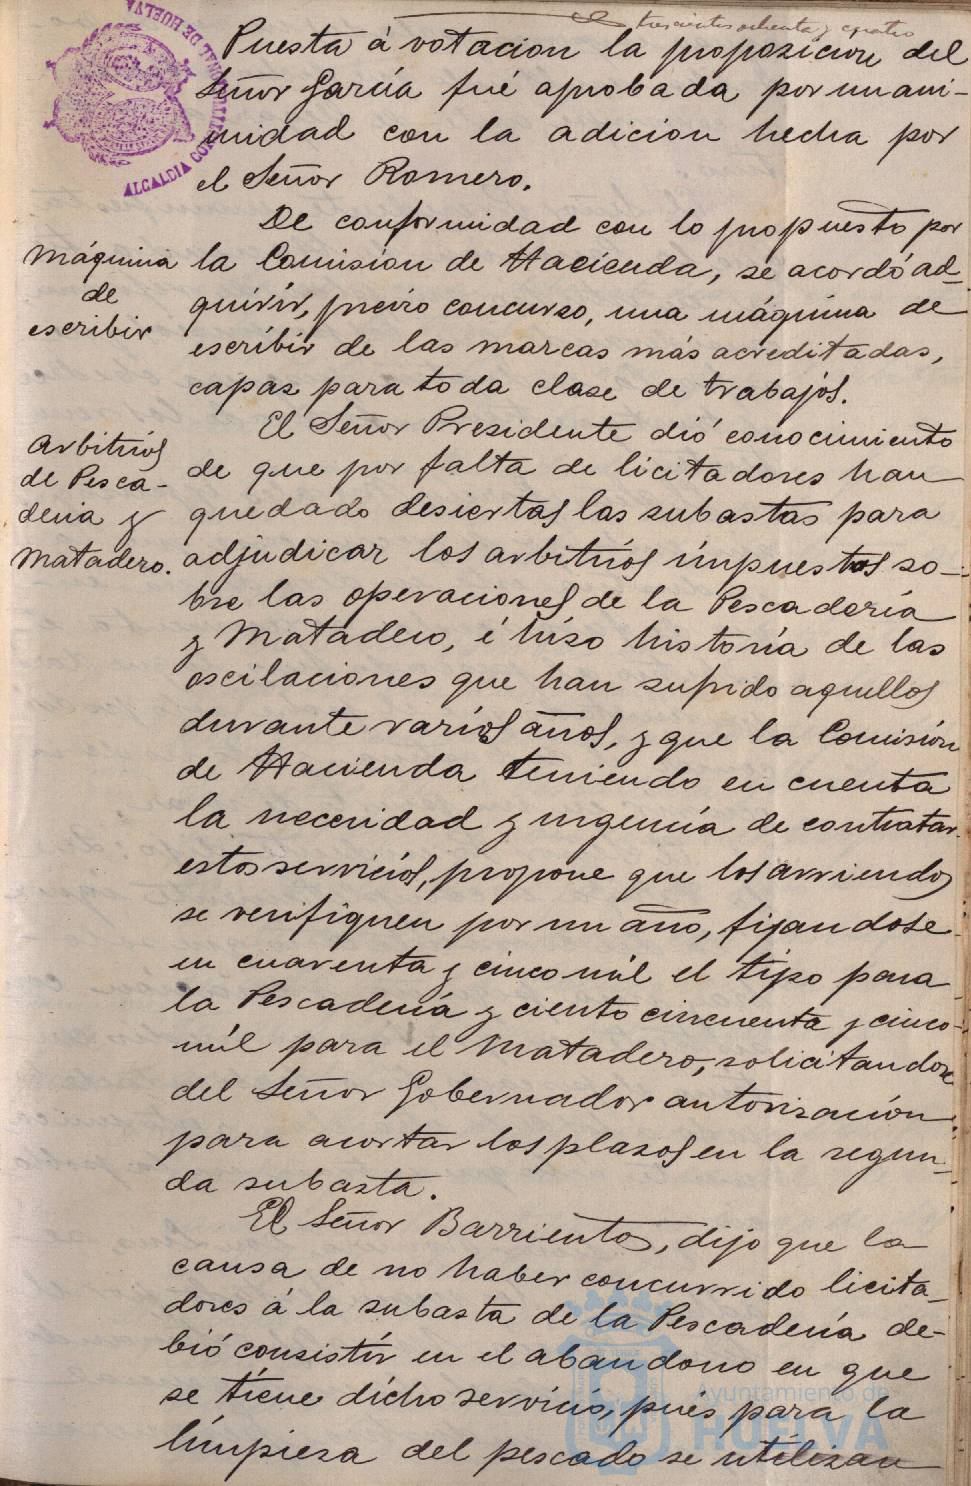 trescientos ochenta y cuatro
Puesta á votacion la proposicion del
Señor García fué aprobada por unani-
midad con la adicion hecha por
el Señor Romero.
De conformidad con lo propuesto por
Máquina de escribir
la Comisión de Hacienda, se acordó ad-
quirir, previo concurso, una máquina de
escribir de las marcas más acreditadas,
capaz para toda clase de trabajos.
El Señor Presidente dió conocimiento
Arbitrios
de Pesca-
dería y
Matadero.
de que por falta de licitadores han
quedado desiertas las subastas para
adjudicar los arbitrios impuestos so-
bre las operaciones de la Pescadería
y Matadero, é hizo historia de las
oscilaciones que han sufrido aquellos
durante varios años, y que la Comisión
de Hacienda teniendo en cuenta
la necesidad y urgencia de contratar
estos servicios, propone que los arriendos
se verifiquen por un año, fijandose
en cuarenta y cinco mil el tipo para
la Pescadería y ciento cincuenta y cinco
mil para el Matadero, solicitandose
del Señor Gobernador autorización
para acortar los plazos en la segun-
da subasta.
El Señor Barrientos, dijo que la
causa de no haber concurrido licita-
dores á la subasta de la Pescadería de-
bió consistir en el abandono en que
se tiene dicho servicio, pués para la
limpieza del pescado se utilizan
ALCALDIA CONSTITUCIONAL DE HUELVA
Ayuntamiento de
HUELVA